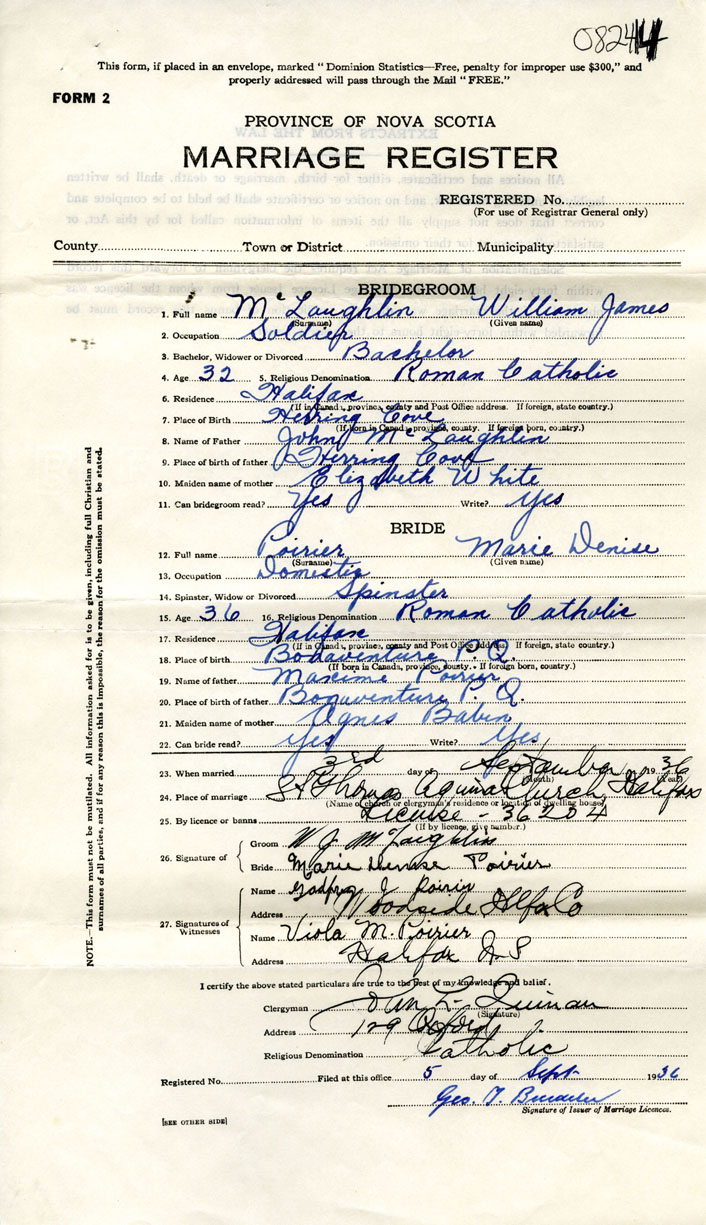 08244
This form, if placed in an envelope, marked "Dominion Statistics—Free, penalty for improper use $300," and
properly addressed will pass through the Mail "FREE."
FORM 2
PROVINCE OF NOVA SCOTIA
MARRIAGE REGISTER
REGISTERED No.
(For use of Registrar General only)
County Town or District Municipality
BRIDEGROOM
1. Full name McLaughlin William James
(Surname) (Given name)
2. Occupation Soldier
3. Bachelor, Widower or Divorced Bachelor
4. Age 32 5. Religious Denomination Roman Catholic
6. Residence Halifax
(If in Canada, province, county and Post Office address. If foreign, state country.)
7. Place of Birth Herring Cove
(If born in Canada, province, county. If foreign born, country.)
8. Name of Father John McLaughlin
9. Place of birth of father Herring Cove
10. Maiden name of mother Elizabeth White
11. Can bridegroom read? Yes Write? Yes
BRIDE
12. Full name Poirier Marie Denise
(Surname) (Given name)
13. Occupation Domestic
14. Spinster, Widow or Divorced Spinster
15. Age 36 16. Religious Denomination Roman Catholic
17. Residence Halifax
(If in Canada, province, county and Post Office address. If foreign, state country.)
18. Place of birth Bonaventure P.Q.
(If born in Canada, province, county. If foreign born, country.)
19. Name of father Maxime Poirier
20. Place of birth of father Bonaventure P.Q.
21. Maiden name of mother Agnes Babin
22. Can bride read? Yes Write? Yes
23. When married 3rd day of September 1936
(Month) (Year)
24. Place of marriage St Thomas Aquinas Church Halifax
(Name of church or clergyman's residence or location of dwelling house)
25. By licence or banns License - 36204
(If by licence, give number.)
26. Signature of Groom W J McLaughlin
Bride Marie Denise Poirier
27. Signatures of Witnesses
Name Godfrey J Poirier
Address Woodside Hlfx Co
Name Viola M. Poirier
Address Halifax N S
I certify the above stated particulars are true to the best of my knowledge and belief.
Clergyman Quinan
(Signature)
Address 129 Oxford
Religious Denomination Catholic
Registered No. Filed at this office 5 day of Sept 1936
Geo. T.
Signature of Issuer of Marriage Licences.
[SEE OTHER SIDE]
NOTE.—This form must not be mutilated. All information asked for is to be given, including full Christian and
surnames of all parties, and if for any reason this is impossible, the reason for the omission must be stated.